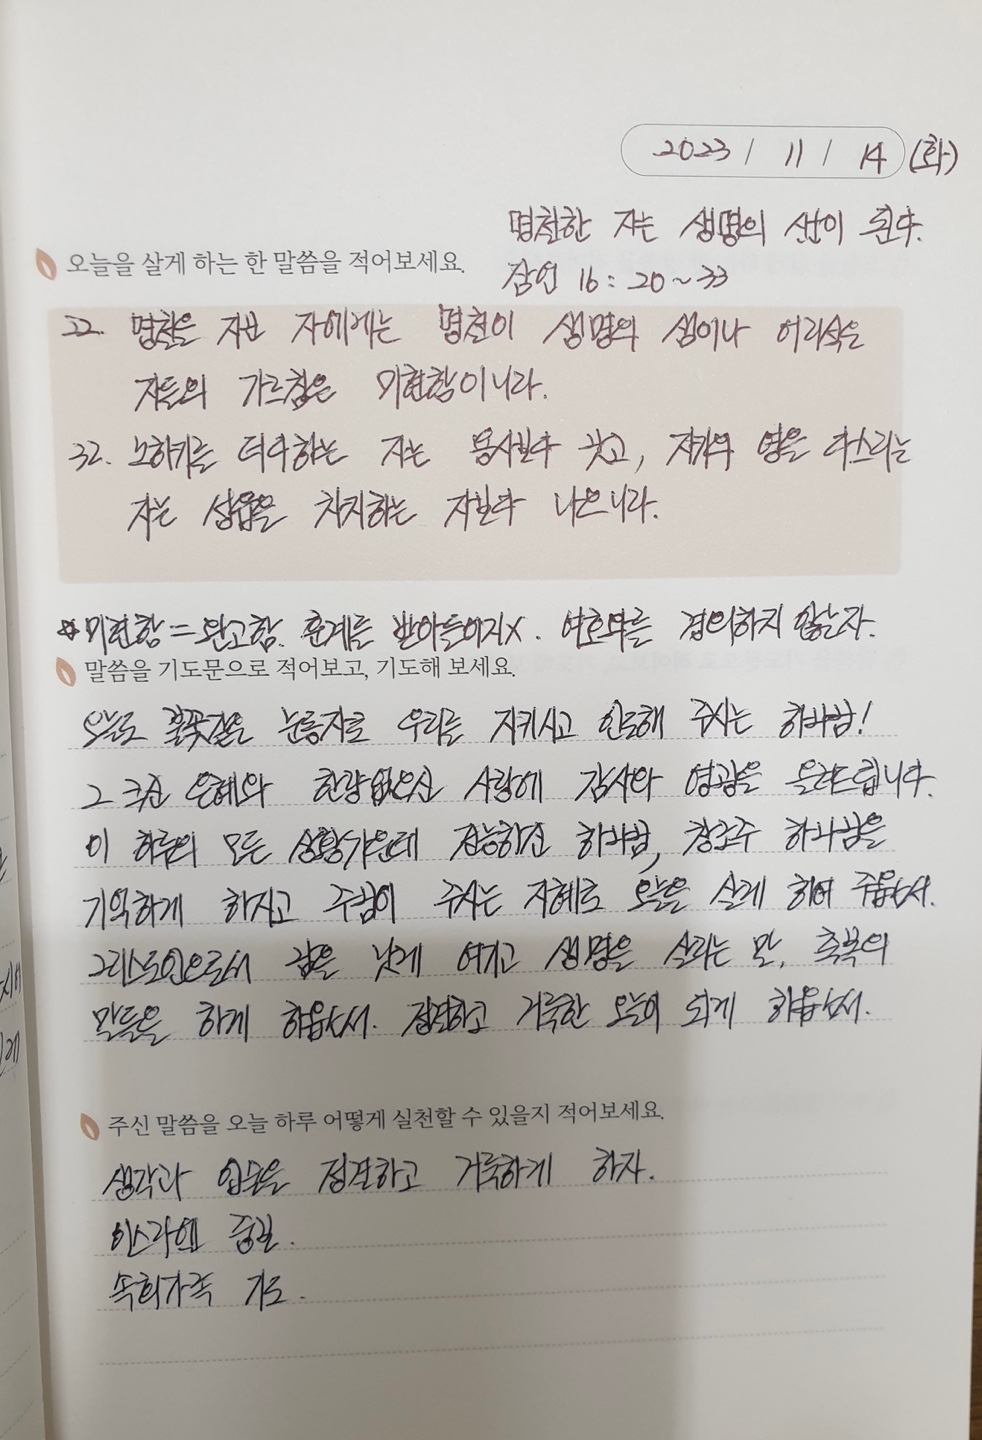 2023 / 11 / 14 (화)
명철한 자는 생명의 샘이 된다.
오늘을 살게 하는 한 말씀을 적어보세요.
잠언 16 : 20~33
22. 명철은 지닌 자에게는 명철이 생명의 샘이나 어리석은
자들의 가르침은 미련함이니라.
32. 노하기를 더디하는 자는 용사보다 낫고, 자기의 영을 다스리는
자는 성읍을 차지하는 자보다 나으니라.
미련함 = 완고함. 훈계를 받아들이지X. 여호와를 경외하지 않는자.
말씀을 기도문으로 적어보고, 기도해 보세요.
오늘도 불꽃같은 눈동자로 우리를 지키시고 인도해 주시는 하나님!
그 크신 은혜와 한량없으신 사랑에 감사와 영광을 올려드립니다.
이 하루의 모든 상황가운데 전능하신 하나님, 창조주 하나님을
기억하게 하시고 주님이 주시는 지혜로 오늘을 살게 하여 주옵소서.
그리스도인으로서 겸손을 낫게 여기고 생명을 살리는 말, 축복의
말들을 하게 하옵소서. 정결하고 거룩한 오늘이 되게 하옵소서.
주신 말씀을 오늘 하루 어떻게 실천할 수 있을지 적어보세요.
생각과 입술을 정결하고 거룩하게 하자.
이스라엘 중보.
속회가족 기도.